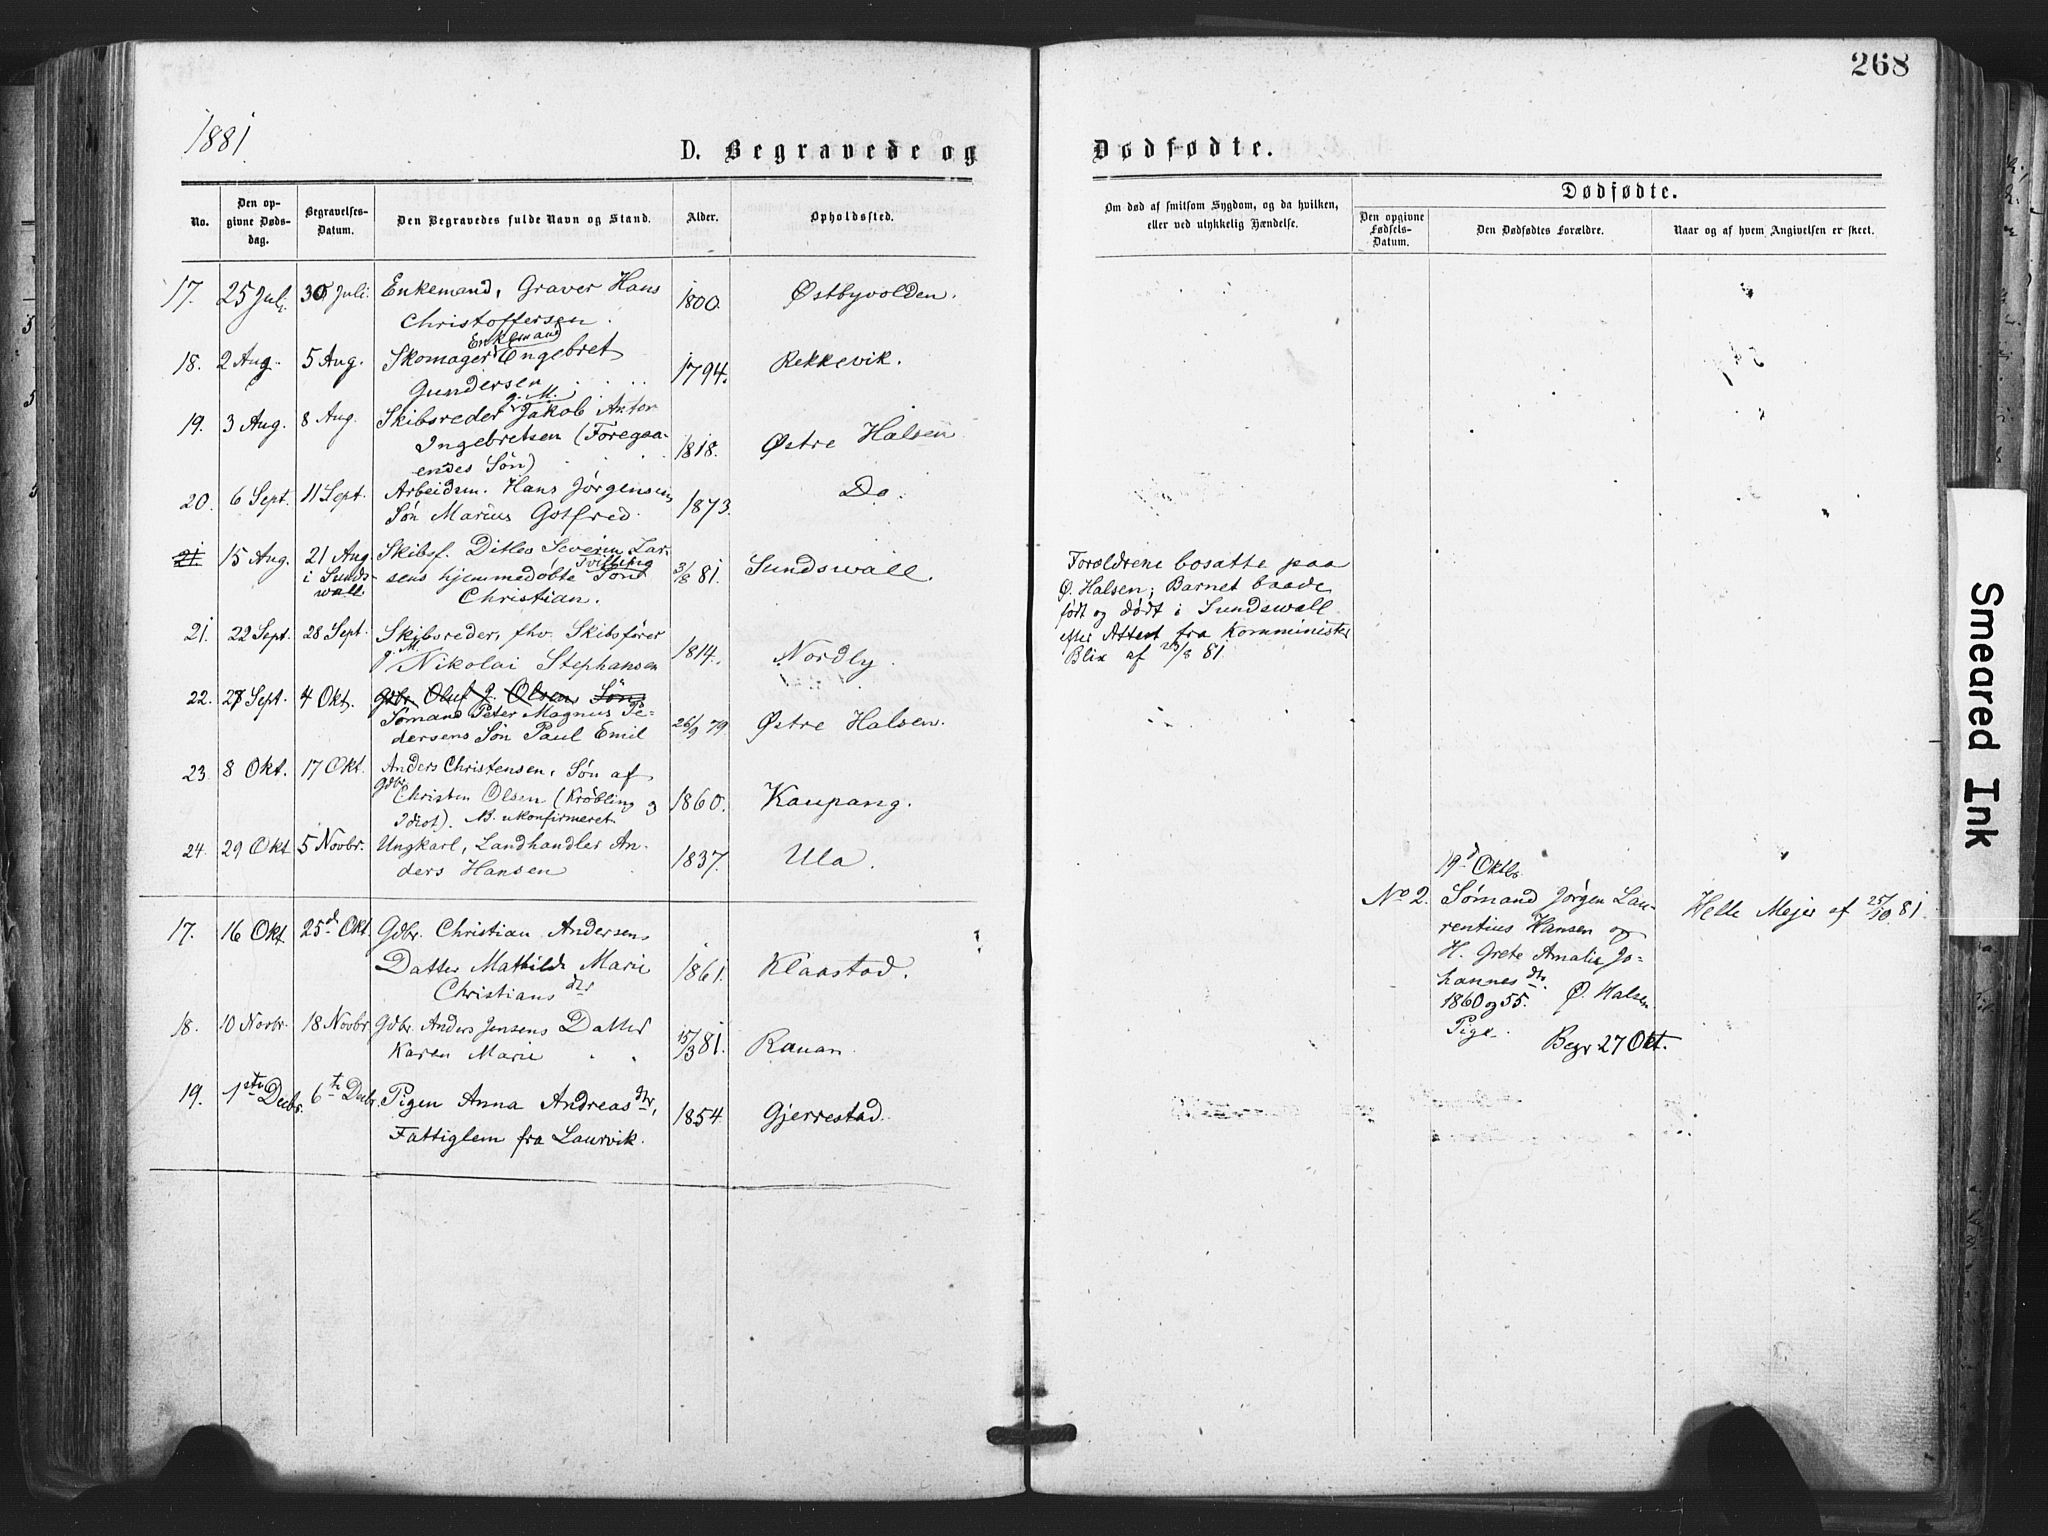 268
1881
D. Begravede og Dødfødte.
Dødfødte.
No.
Den op-
givne Døds-
dag.
Begravelses-
Datum.
Den Begravedes fulde Navn og Stand.
Alder.
Opholdssted.
Om død af smitsom Sygdom, og da hvilken,
eller ved ulykkelig Hændelse.
Den opgivne
Fødsels-
Datum.
Den Dødfødtes Forældre.
Naar og af hvem Angivelsen er skeet.
17. 25 Juli 30 Juli. Enkemand, Graver Hans 1800. Østbyvolden.
Christoffersen.
Enkemand
18. 2 Aug. 5 Aug. Skomager Engebret 1794. Rekkevik.
Gundersen
g. M.
19. 3 Aug. 8 Aug. Skibsreder Jakob Anton
Ingebretsen (Foregaa- 1818. Østre Halsen
endes Søn)
20. 6 Sept. 11 Sept. Arbeidsm. Hans Jørgensens 1873. Do.
Søn Marius Gotfred.
21. 15 Aug. 21 Aug. Skibsf. Ditlev Severin Lar-
i Sunds- sens hjemmedøbte Tvilling Søn 3/8 81. Sundswall.
wall. Christian.
Forældrene bosatte paa
Ø. Halsen; Barnet baade
født og dødt i Sundswall
efter Attest fra Komminister
Blix af 23/8 81.
21. 22 Sept. 28 Sept. Skibsreder, fhv. Skibsfører
g. M. Nikolai Stephansen 1814. Nordby.
22. 27 Sept. 4 Okt. Gdbr. Oluf J. Olsens Søn
Sømand Peter Magnus Pe-
dersens Søn Paul Emil 26/9 79 Østre Halsen.
23. 8 Okt. 17 Okt. Anders Christensen, Søn af
Gdbr. Christen Olsen (Krøbling og 1860. Kaupang.
Idiot). NB. ukonfirmeret.
24. 29 Okt 5 Novbr. Ungkarl, Landhandler An- 1837. Ula.
ders Hansen
19d Oktbr.
No 2. Sømand Jørgen Lau-
rentius Hansen og
H. Grete Amalie Jo-
hannesdtr.
1860 og 55. Ø. Halsen
Pige.
Begr 27 Okt.
Helle Mejer af 25/10 81.
17. 16 Okt 25d Okt. Gdbr. Christian Andersens
Datter Mathilde Marie 1861. Klaastad.
Christiansdtr
18. 10 Novbr. 18 Novbr Gdbr. Anders Jensens Datter 15/3 81. Rauan.
Karen Marie
19. 1ste Decbr. 6te Decbr. Pigen Anna Andreasdtr, 1854 Gjerrestad.
Fattiglem fra Laurvik.
Smeared Ink